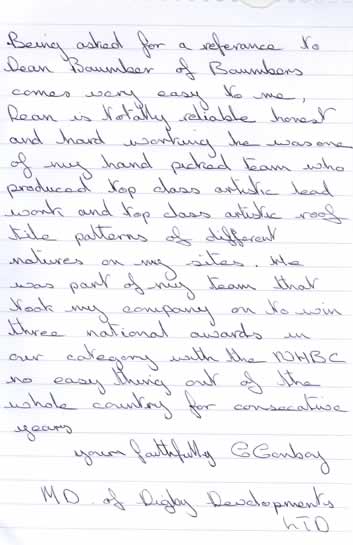 Being asked for a referance to
Dean Baumber of Baumbers
comes very easy to me,
Dean is totally reliable honest
and hard working he was one
of my hand picked team who
produced top class artistic lead
work and top class artistic roof
tile patterns of different
natures on my sites. He
was part of my team that
took my company on to win
three national awards in
our category with the NHBC
no easy thing out of the
whole country for consecative
years
yours faithfully
MD. of Digby Developments
LTD